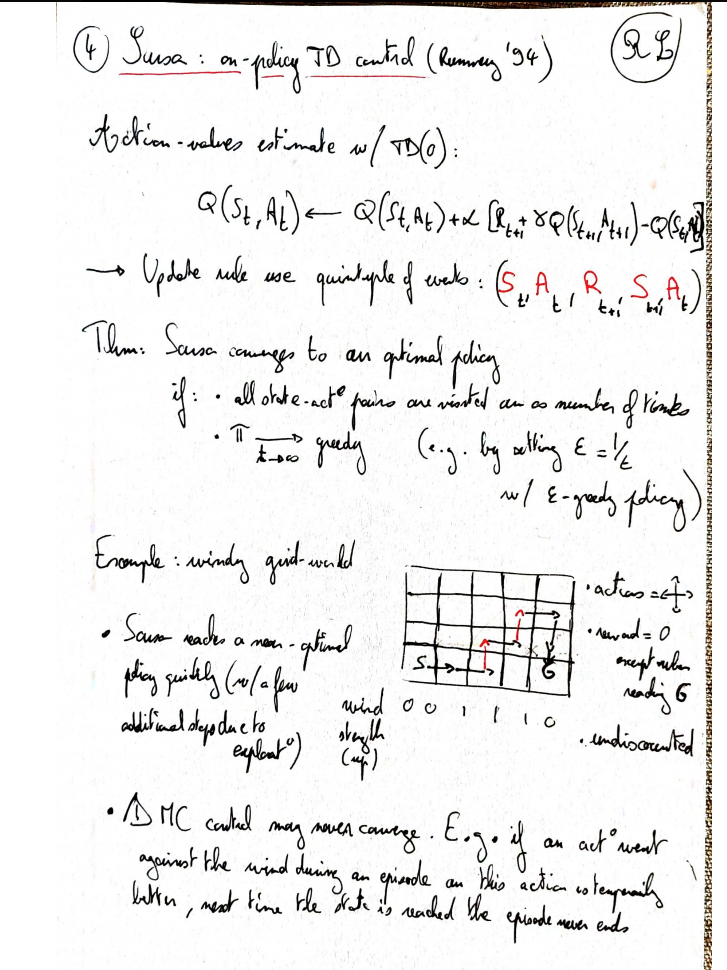 ④ Sarsa : on-policy TD control (Rummery '94)
RL
Action-values estimate w/ TD(0) :
Q(S_t, A_t) ← Q(S_t, A_t) + α [R_{t+1} + γ Q(S_{t+1}, A_{t+1}) - Q(S_t, A_t)]
→ Update rule use quintuple of events : (S_t, A_t, R_{t+1}, S_{t+1}, A_t)
Thm: Sarsa converges to an optimal policy
if : • all state-act° pairs are visited an ∞ number of times
• π →_{t→∞} greedy (e.g. by setting ε = 1/t
w/ ε-greedy policy)
Example : windy grid-world
• Sarsa reaches a near-optimal
policy quickly (w/ a few
additional steps due to
explorat°)
S
G
wind 0 0 1 1 1 0
strength
(up)
• actions =
• reward = 0
except when
reaching G
• undiscounted
• ⚠ MC control may never converge. E.g. if an act° went
against the wind during an episode an this action is temporarily
better, next time the state is reached the episode never ends